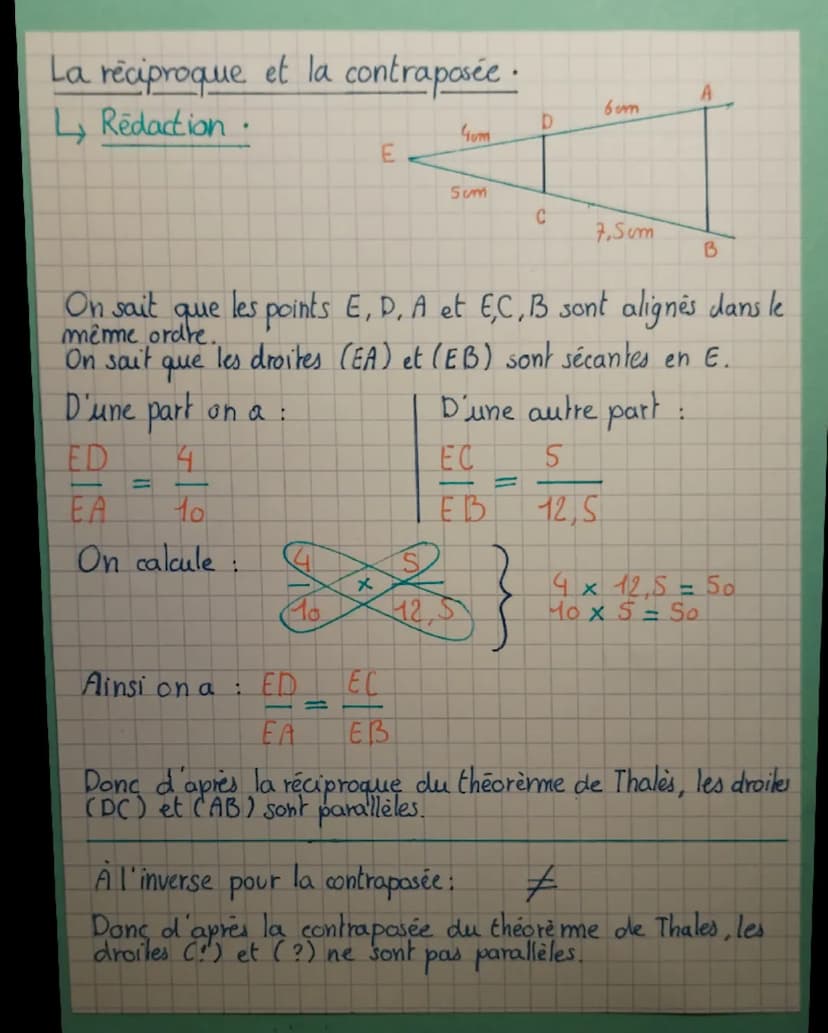 La réciproque et la contraposée.
↳ Rédaction.
E
4cm
D
6cm
A
5cm
C
7,5cm
B
On sait que les points E, D, A et E,C, B sont alignés dans le
même ordre.
On sait que les droites (EA) et (EB) sont sécantes en E.
D'une part on a :
ED/EA = 4/10
D'une autre part :
EC/EB = 5/12,5
On calcule : 4/10 × 5/12,5 } 4 × 12,5 = 50
10 × 5 = 50
Ainsi on a : ED/EA = EC/EB
Donc d'après la réciproque du théorème de Thalès, les droites
(DC) et (AB) sont parallèles.
À l'inverse pour la contraposée : ≠
Donc d'après la contraposée du théorème de Thales, les
droites (?) et (?) ne sont pas parallèles.